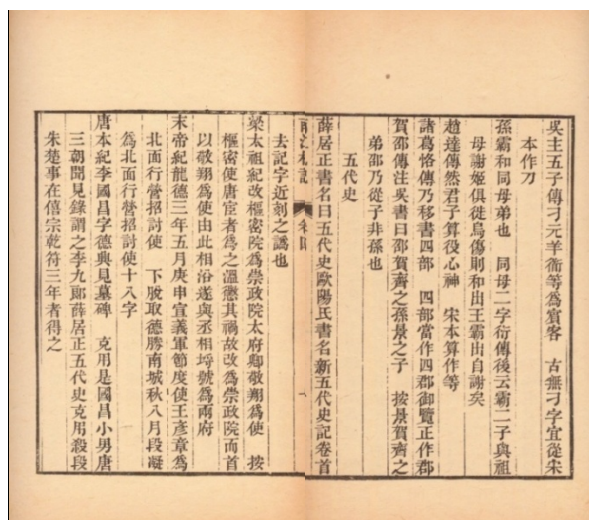 吳主五子傳刁元羊衜等爲賓客　古無刁字宜從宋
本作刀
孫霸和同母弟也　同母二字衍傳後云霸二子與祖
母謝姬俱徙烏傷則和出王霸出自謝矣
趙達傳然君子算役心神　宋本算作等
諸葛恪傳乃移書四部　四部當作四郡御覽正作郡
賀邵傳注吳書曰邵賀齊之孫景之子　按景賀齊之
弟邵乃從子非孫也
五代史
薛居正書名曰五代史歐陽氏書名新五代史記卷首
去記字近刻之譌也
梁太祖紀改樞密院爲崇政院太府卿敬翔爲使　按
樞密使唐宦者爲之溫懲其禍故改爲崇政院而首
以敬翔爲使由此相沿遂與丞相埒號爲兩府
末帝紀龍德三年五月庚申宣義軍節度使王彥章爲
北面行營招討使　下脫取德勝南城秋八月段凝
爲北面行營招討使十八字
唐本紀李國昌字德興見墓碑　克用是國昌小男唐
三朝聞見錄謂之李九郞薛居正五代史克用殺段
朱楚事在僖宗乾符三年者得之